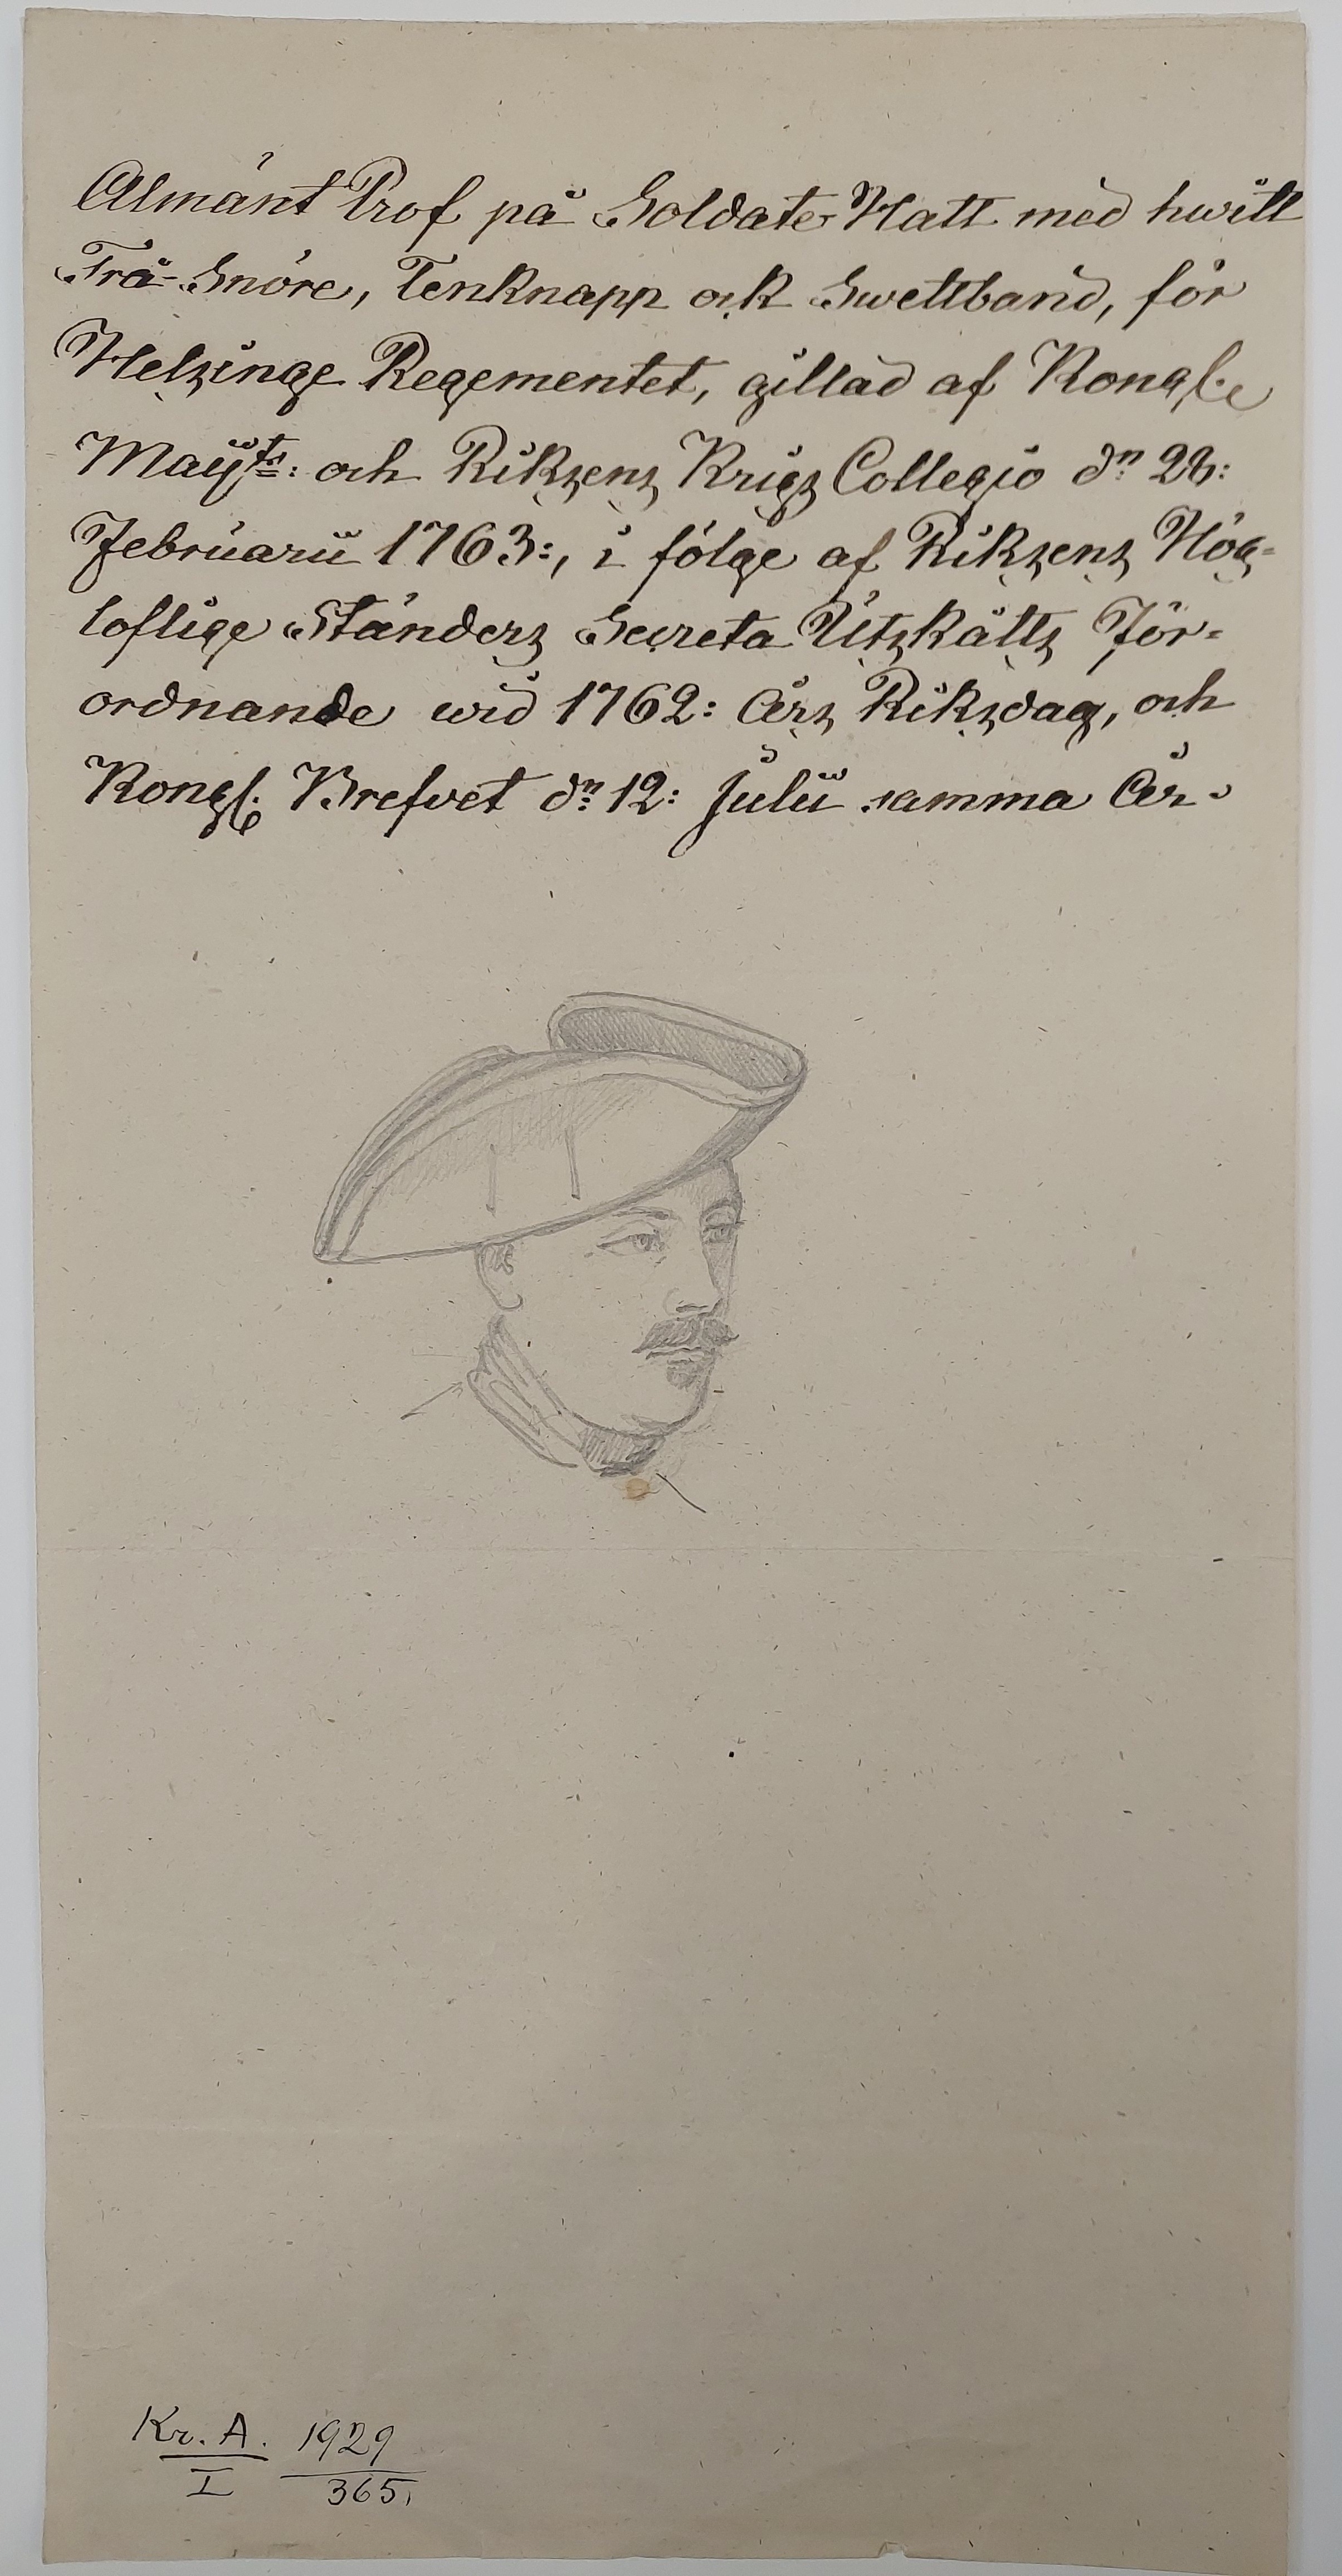 Almänt Prof på Soldate Hatt med hwitt
Trå-Snöre, Tenknapp ock Swettband, för
Helsinge Regementet, gillad af Kongl.e
Maÿts: och Riksens Krigs Collegio dn 28:
Februarii 1763:, i fölge af Riksens Hög-
loflige Ständers Secreta Utskåtts För-
ordnande wid 1762: Års Riksdag, och
Kongl. Brefvet dn 12: Julii samma År.
Kr. A. 1929
I 365.